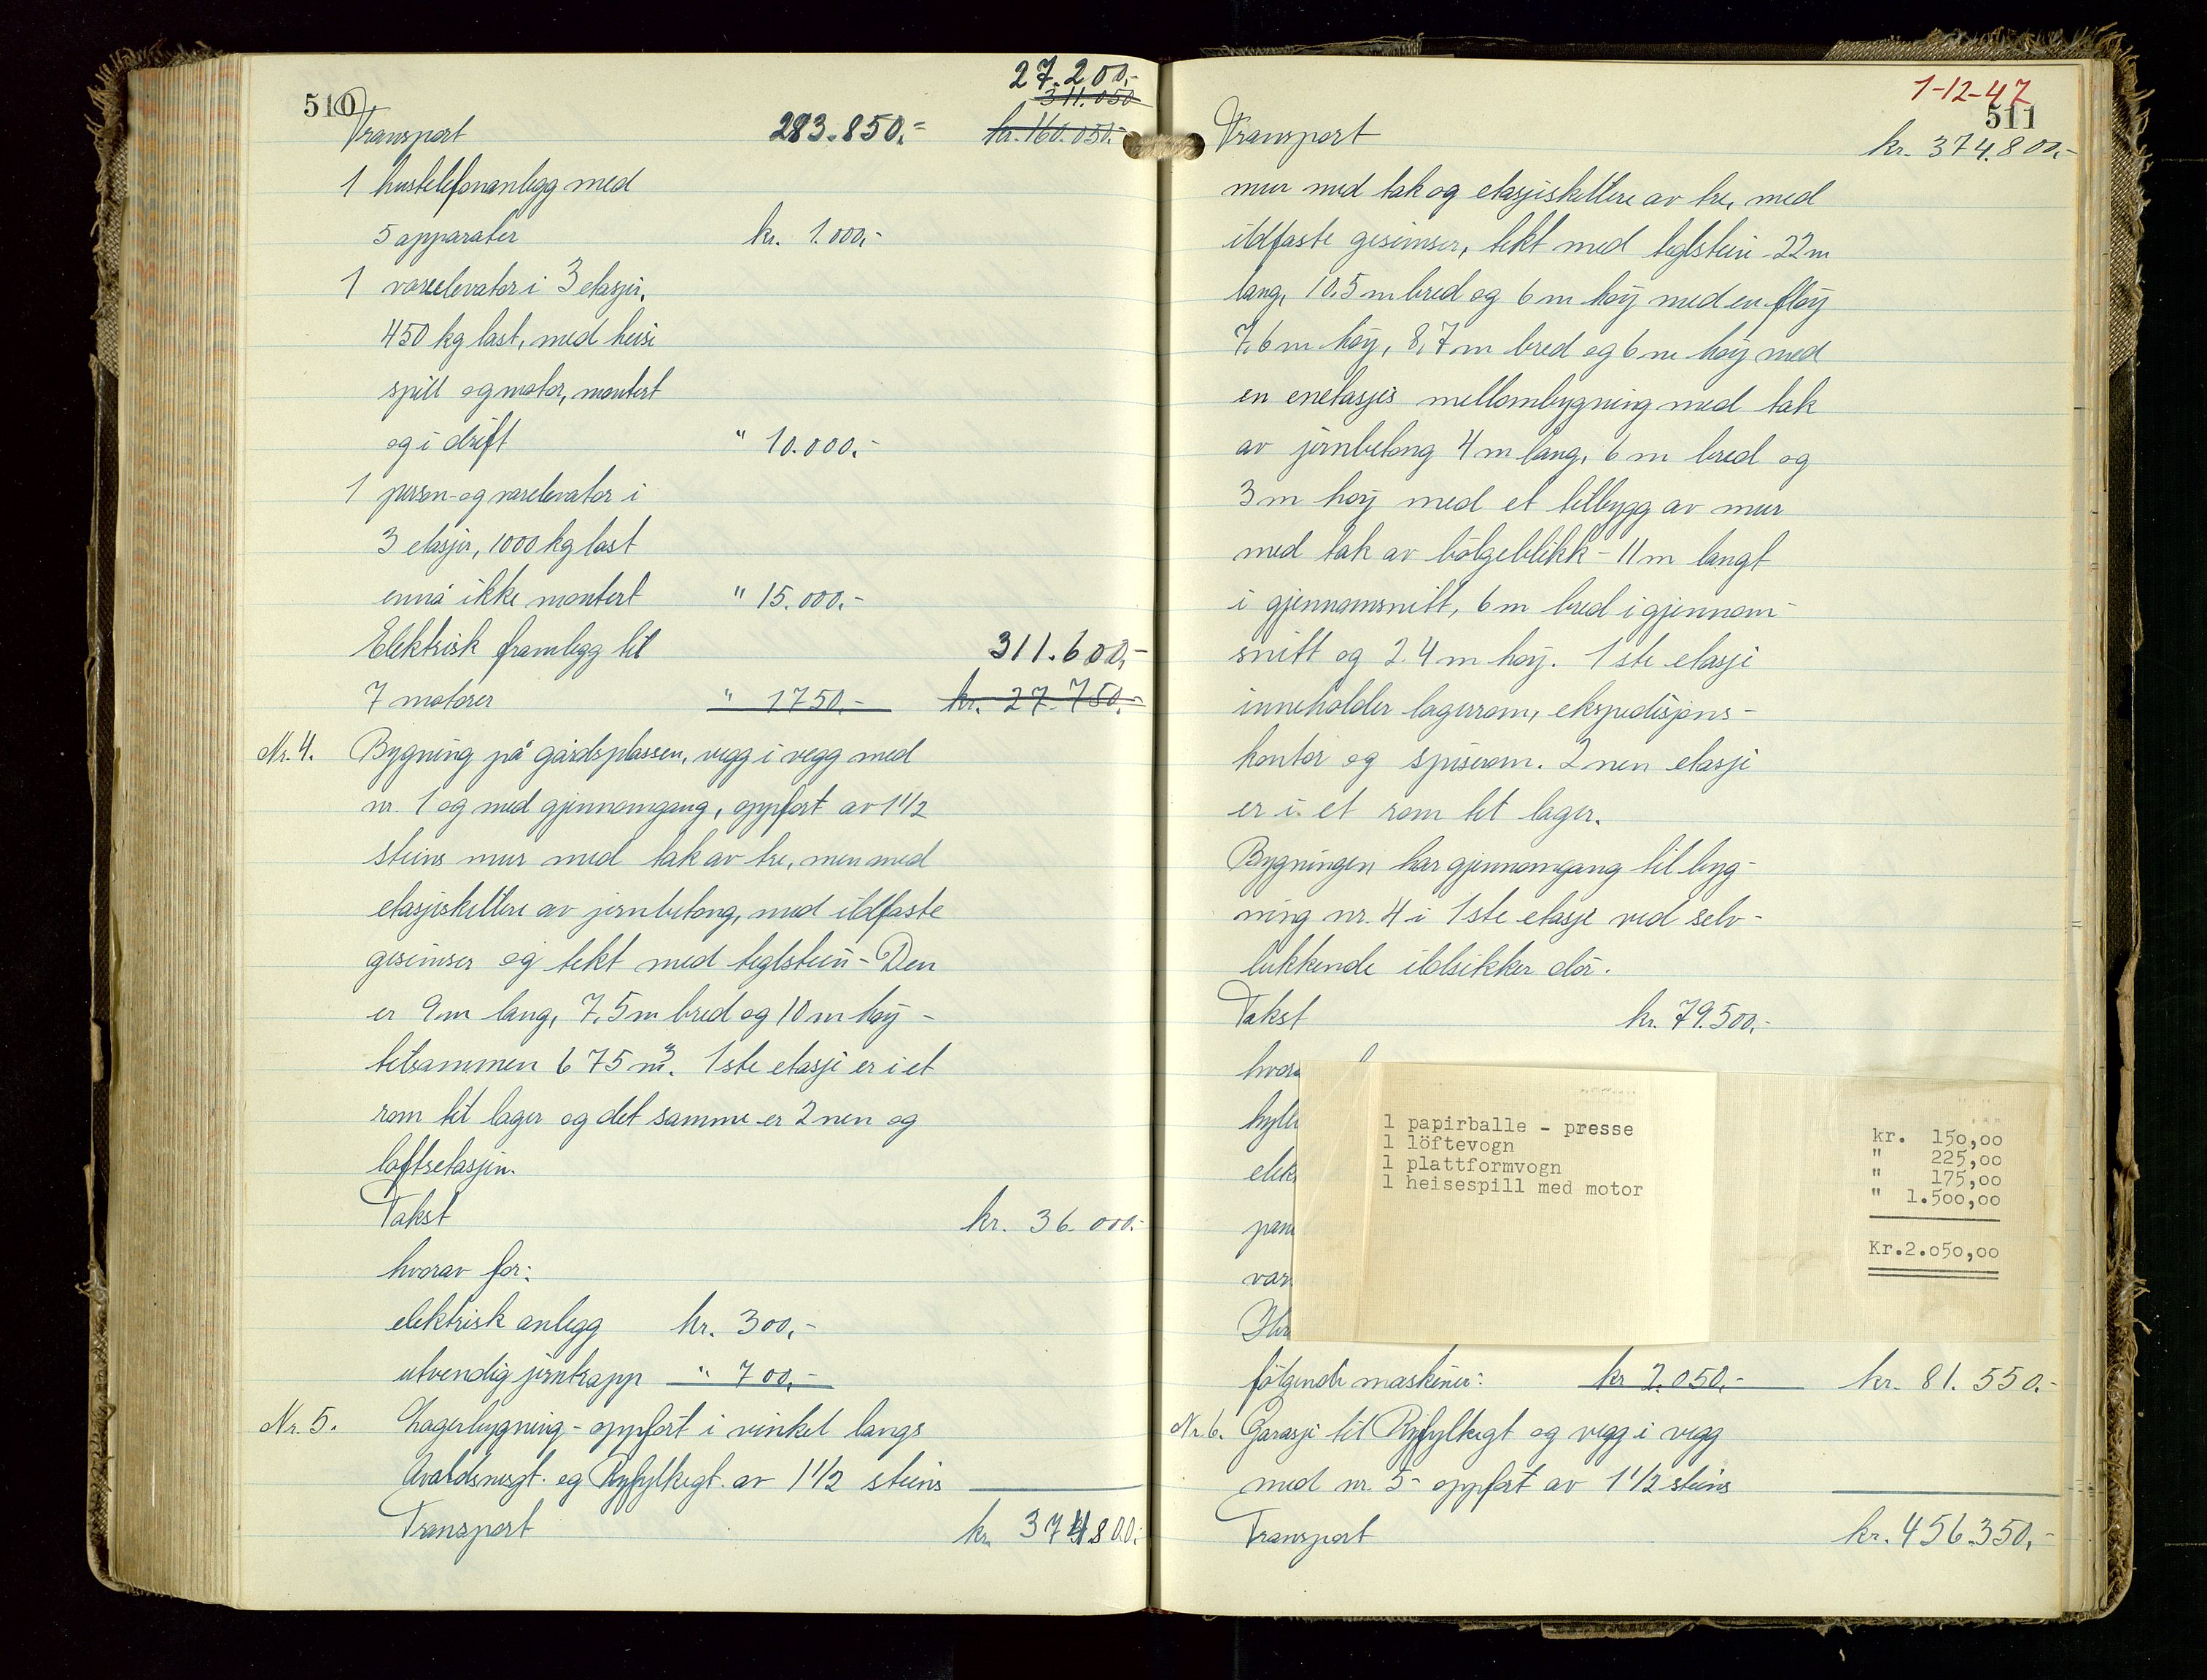 510
27.200,-
311.050
Transport 283.850,- kr. 160.050,-
1 hustelefonanlegg med
5 apparater kr. 1.000,-
1 vareelevator i 3 etasjer,
450 kg last, med heise
spill og motor, montert
og i drift " 10.000,-
1 person- og vareelevator i
3 etasjer, 1000 kg last
ennå ikke montert " 15.000,-
Elektrisk framlegg til 311.600,-
7 motorer " 1750,- kr. 27.750,-
Nr. 4. Bygning på gårdsplassen, vegg i vegg med
nr. 1 og med gjennomgang, oppført av 1 1/2
steins mur med tak av tre, men med
etasjeskillere av jernbetong, med ildfaste
gesimser og tekt med teglstein - Den
er 9 m lang, 7,5 m bred og 10 m høy -
tilsammen 675 m³. 1ste etasje er i et
rom til lager og det samme er 2nen og
loftsetasjen.
Takst kr. 36.000,-
hvorav for:
elektrisk anlegg kr. 300,-
utvendig jerntrapp " 700,-
Nr. 5. Lagerbygning - oppført i vinkel langs
Avaldsnesgt. og Ryfylkegt. av 1 1/2 steins
Transport kr. 374.800,-
1-12-47
511
Transport kr. 374.800,-
mur med tak og etasjeskillere av tre, med
ildfaste gesimser, tekt med teglstein - 22 m
lang, 10.5 m bred og 6 m høy med en fløy
7,6 m høy, 8,7 m bred og 6 m høy med
en enetasjes mellombygning med tak
av jernbetong 4 m lang, 6 m bred og
3 m høy med et tilbygg av mur
med tak av bølgeblikk - 11 m langt
i gjennomsnitt, 6 m bred i gjennom-
snitt og 2.4 m høy. 1ste etasje
inneholder lagerrom, ekspedisjons-
kontor og spiserom. 2nen etasje
er i et rom til lager.
Bygningen har gjennomgang til byg-
ning nr. 4 i 1ste etasje ved selv-
lukkende ildsikker dør.
Takst kr. 79.500,-
1 papirballe - presse kr. 150,00
1 löftevogn " 225,00
1 plattformvogn " 175,00
1 heisespill med motor " 1.500,00
Kr.2.050,00
følgende maskiner: kr 2.050,- kr. 81.550,-
Nr. 6. Garasje til Ryfylkegt og vegg i vegg
med nr. 5 - oppført av 1 1/2 steins
Transport kr. 456.350,-